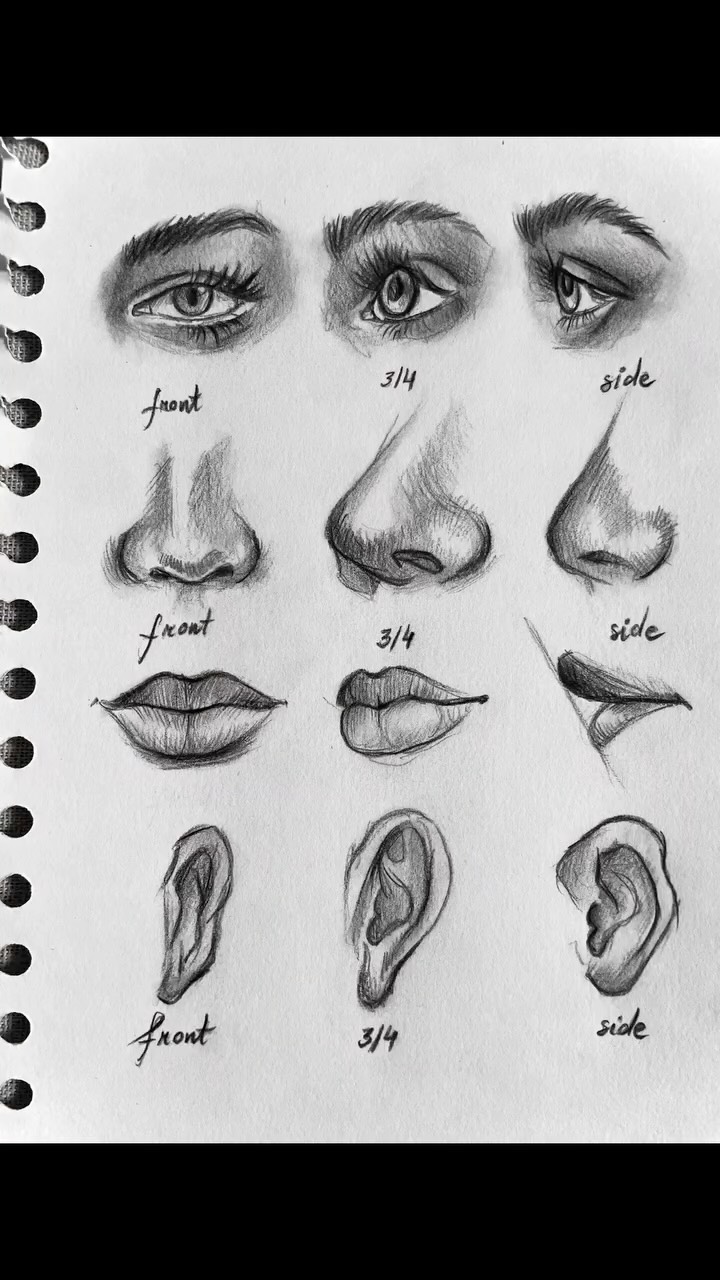 front 3/4 side
front 3/4 side
front 3/4 side